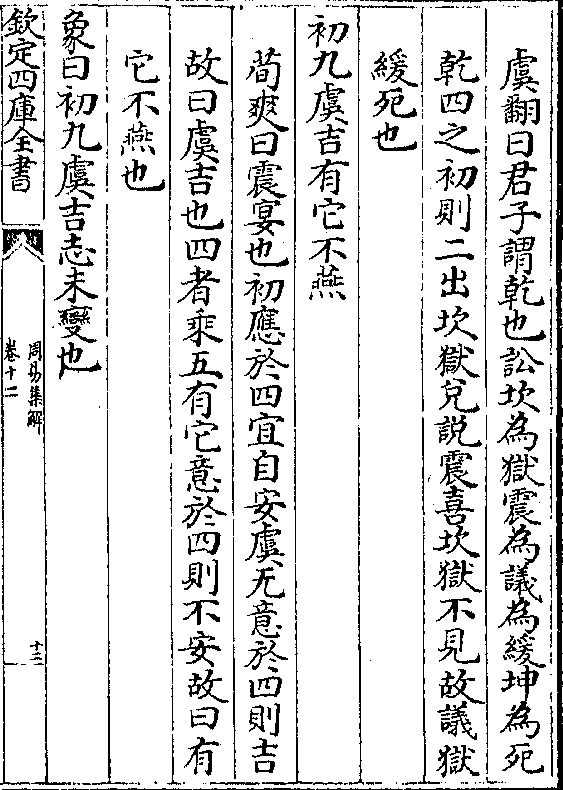 虞翻曰君子謂乾也訟坎為獄震為議為緩坤為死
乾四之初則二出坎獄兌説震喜坎獄不見故議獄
緩死也
初九虞吉有它不燕
荀爽曰震宴也初應於四宜自安虞无意於四則吉
故曰虞吉也四者乘五有它意於四則不安故曰有
它不燕也
象曰初九虞吉志未變也
欽定四庫全書
周易集解
卷十二
十二